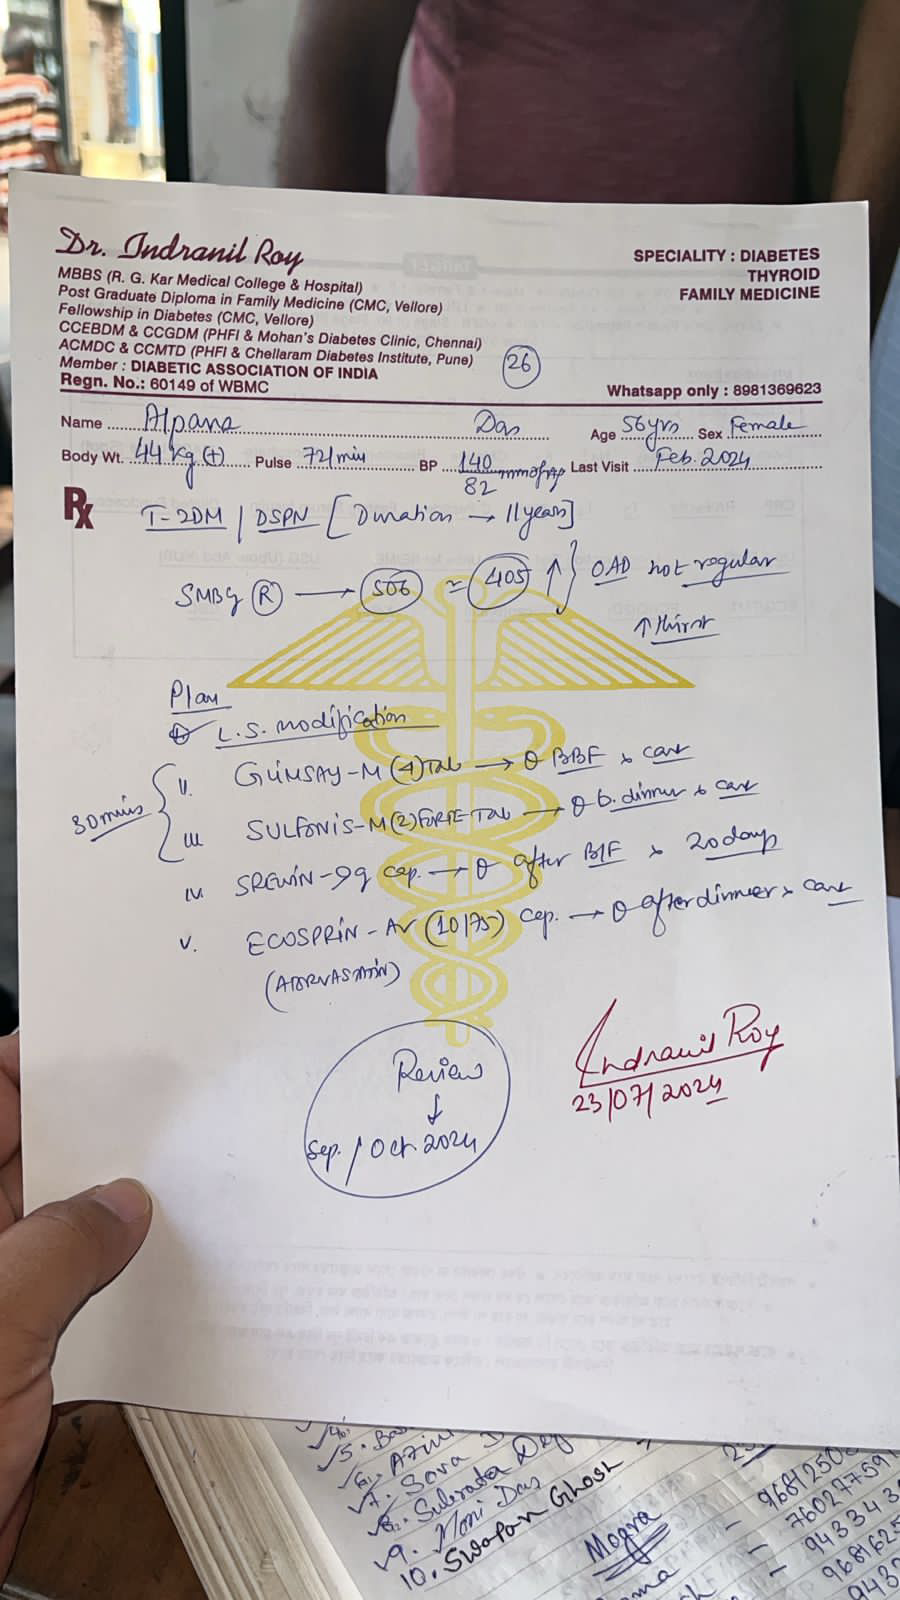 Dr. Indranil Roy
MBBS (R. G. Kar Medical College & Hospital)
Post Graduate Diploma in Family Medicine (CMC, Vellore)
Fellowship in Diabetes (CMC, Vellore)
CCEBDM & CCGDM (PHFI & Mohan's Diabetes Clinic, Chennai)
ACMDC & CCMTD (PHFI & Chellaram Diabetes Institute, Pune)
Member : DIABETIC ASSOCIATION OF INDIA
Regn. No.: 60149 of WBMC
SPECIALITY : DIABETES
THYROID
FAMILY MEDICINE
26
Whatsapp only : 8981369623
Name Alpana Das Age 56yrs Sex Female
Body Wt. 44 kg (+) Pulse 72/min BP 140/82 mmofHg Last Visit Feb. 2024
Rx T-2DM / DSPN [Duration → 11 years]
SMBG (R) → 506 = 405 ↑ } OAD not regular
↑ thirst
Plan
L.S. modification
30 mins { II. GLIMSAY-M (4) Tab → BBF x cont
III SULFONIS-M (2) FORTE Tab → b. dinner x cont
IV. cap. → after B/F x 20 days
V. ECOSPRIN-AV (10/75) Cap. → after dinner x cont
(ATORVASTATIN)
Review
↓
Sep. / Oct. 2024
Indranil Roy
23/07/2024
5.
7. Sova
8. Subrata Dey
9. Moni Das
10. Swapan Ghosh
Mogra